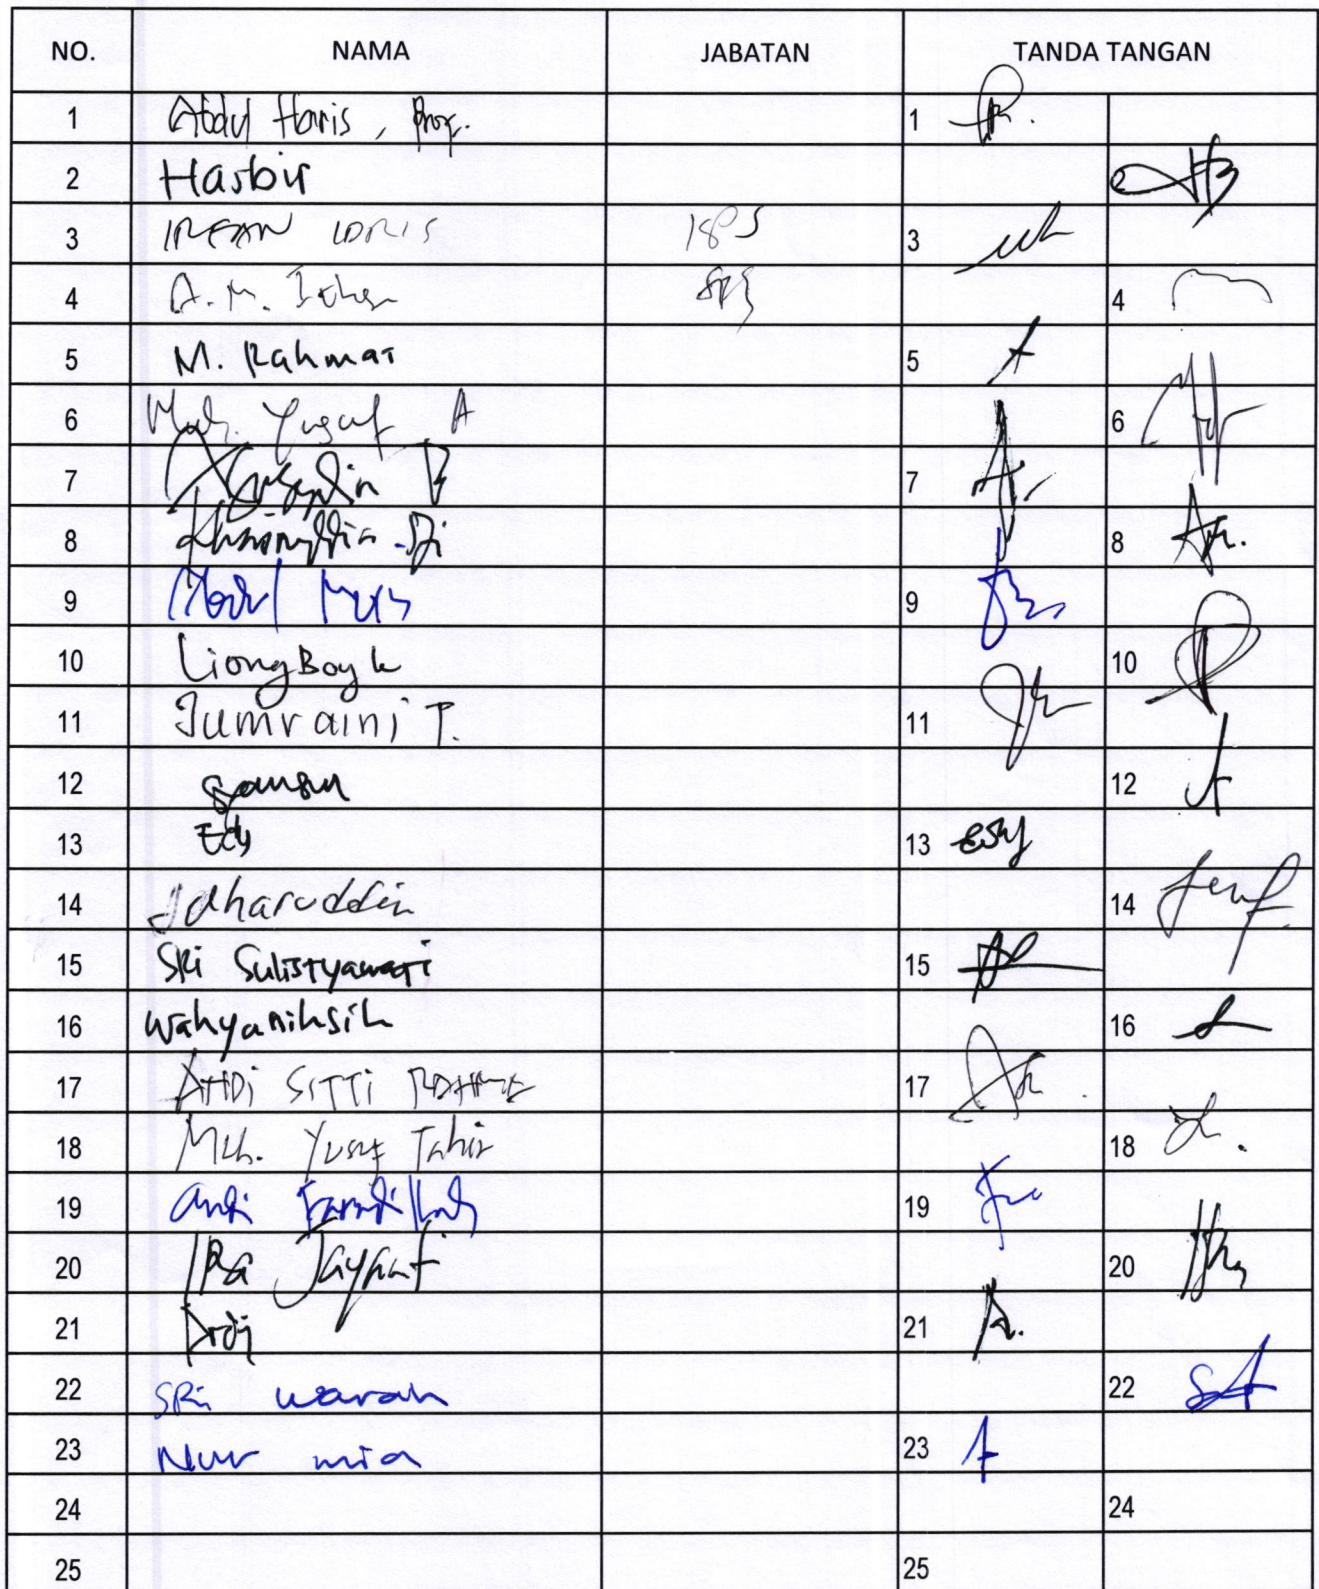 NO. NAMA JABATAN TANDA TANGAN
1 Abdul Haris, Prof. 1
2 Hasbir
3 IRFAN IDRIS 3
4 A.M. 4
5 M. Rahmat 5
6 Muh. Yusuf A 6
7 7
8 8
9 9
10 Liong Boy k 10
11 Jumraini T. 11
12 Samsu 12
13 Edy 13 Edy
14 Jaharuddin 14
15 SRi SulisTyawaTi 15
16 Wahyanihsih 16
17 ANDi SiTTi 17
18 Muh. Yusuf Tahir 18
19 Andi Faradillah 19
20 IRa Jayanti 20
21 Ardi 21 A.
22 SRi warah 22
23 Nur mia 23
24 24
25 25